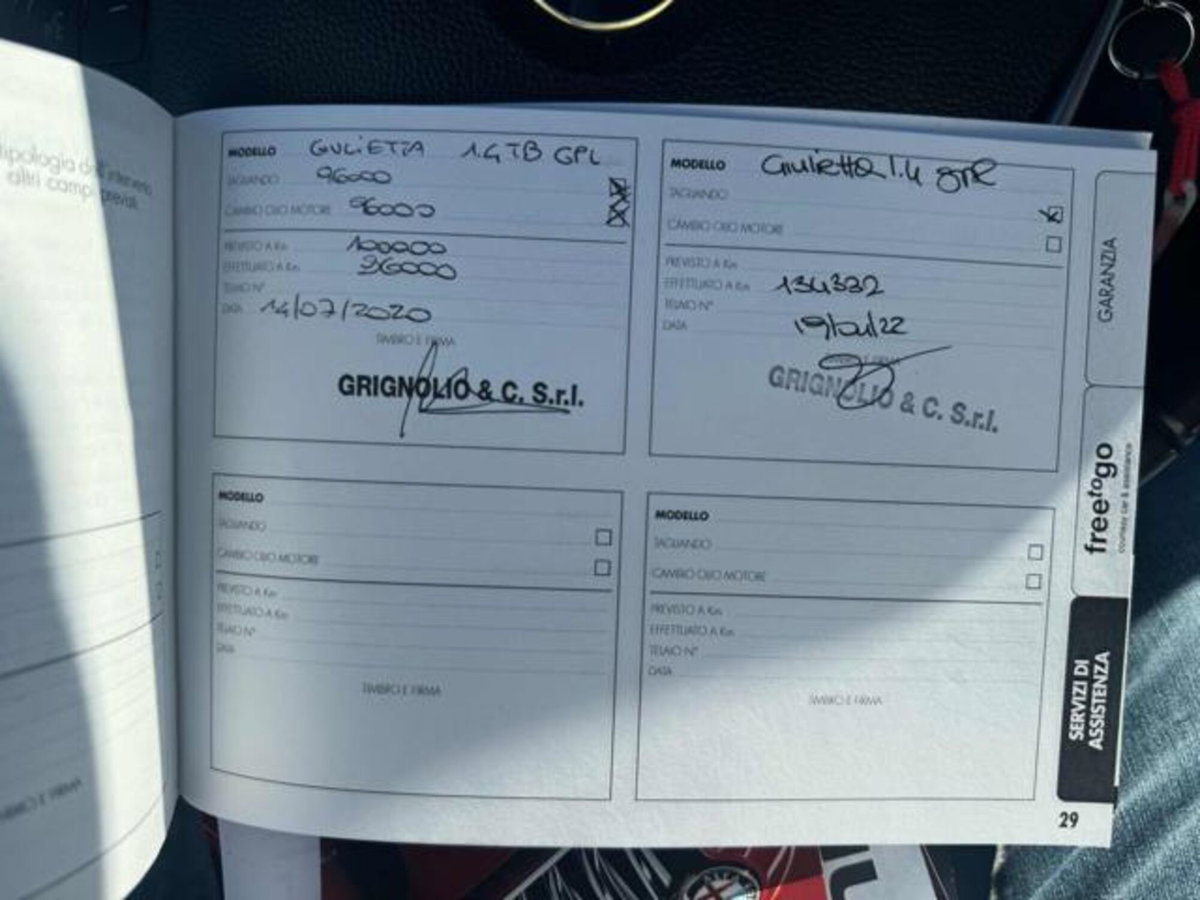 tipologia dell'intervento
altri campi previsti
MODELLO GIULIETTA 1.4 TB GPL
TAGLIANDO 96000
CAMBIO OLIO MOTORE 96000
PREVISTO A Km 100000
EFFETTUATO A Km 96000
TELAIO N°
DATA 14/07/2020
TIMBRO E FIRMA
GRIGNOLIO & C. S.r.l.
MODELLO Giulietta 1.4
TAGLIANDO
CAMBIO OLIO MOTORE
PREVISTO A Km
EFFETTUATO A Km 134332
TELAIO N°
DATA
TIMBRO E FIRMA
GRIGNOLIO & C. S.r.l.
MODELLO
TAGLIANDO
CAMBIO OLIO MOTORE
PREVISTO A Km
EFFETTUATO A Km
TELAIO N°
DATA
TIMBRO E FIRMA
MODELLO
TAGLIANDO
CAMBIO OLIO MOTORE
PREVISTO A Km
EFFETTUATO A Km
TELAIO N°
DATA
TIMBRO E FIRMA
GARANZIA
freetogo
courtesy car & assistance
SERVIZI DI
ASSISTENZA
29
TIMBRO E FIRMA